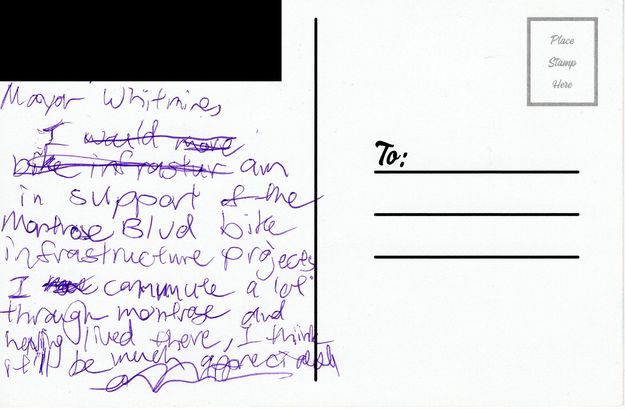 Mayor Whitmires,
I would more
bike infrastur am
in support of the
Montrose Blvd bike
infrastructure projects
I commute a lot
through montrose and
having lived there, I think
it'll be much appreciated
Place
Stamp
Here
To: